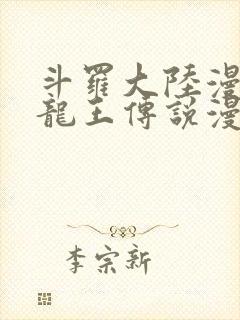 斗羅大陸漫
龍王傳說漫
李宗新